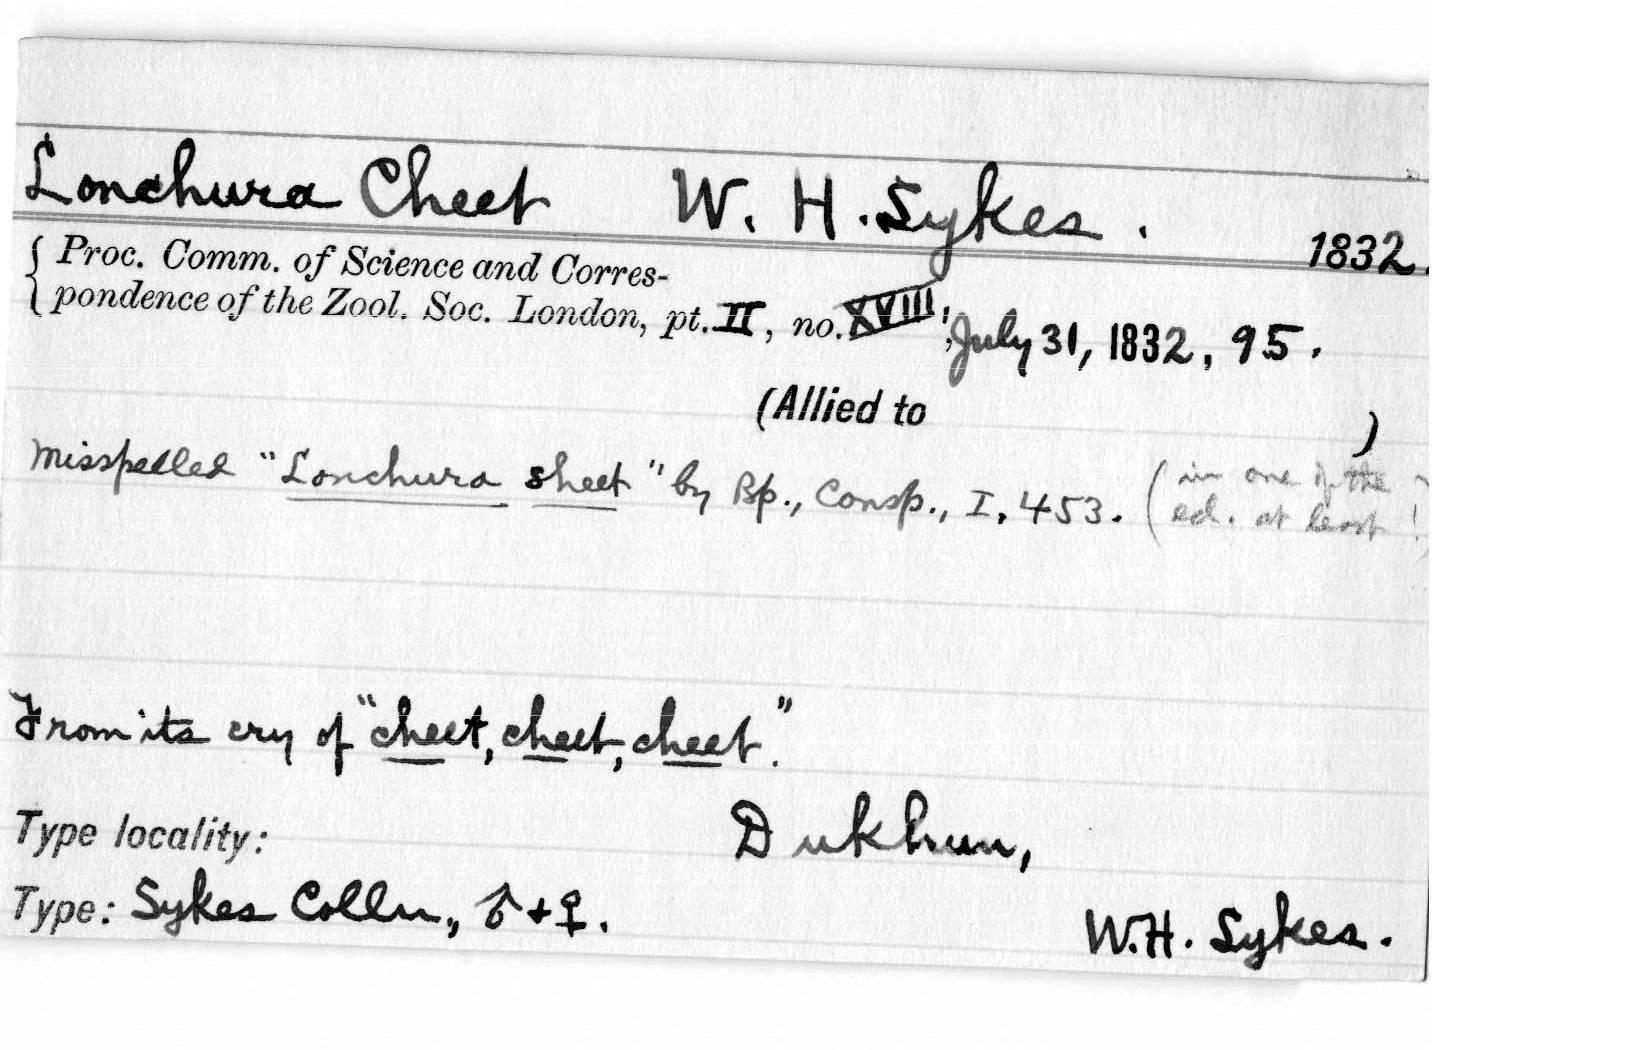 Lonchura Cheet W. H. Sykes. 1832.
{ Proc. Comm. of Science and Corres-
pondence of the Zool. Soc. London, pt. II, no. XVIII, July 31, 1832, 95.
(Allied to )
Misspelled "Lonchura sheet" by Bp., Consp., I, 453. (in one of the
ed. at least!)
From its cry of "cheet, cheet, cheet."
Type locality: Dukhun,
Type: Sykes Colln., ♂ + ♀. W.H. Sykes.